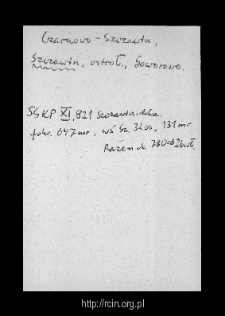 Czarnowo - Szczawin,
Szczawin, ostroł., Goworowo.
SGKP XI, 821 Szczawin
folw. 647 mr, wś 32 os, 131 mr
Razem ok. 780
http://rcin.org.pl